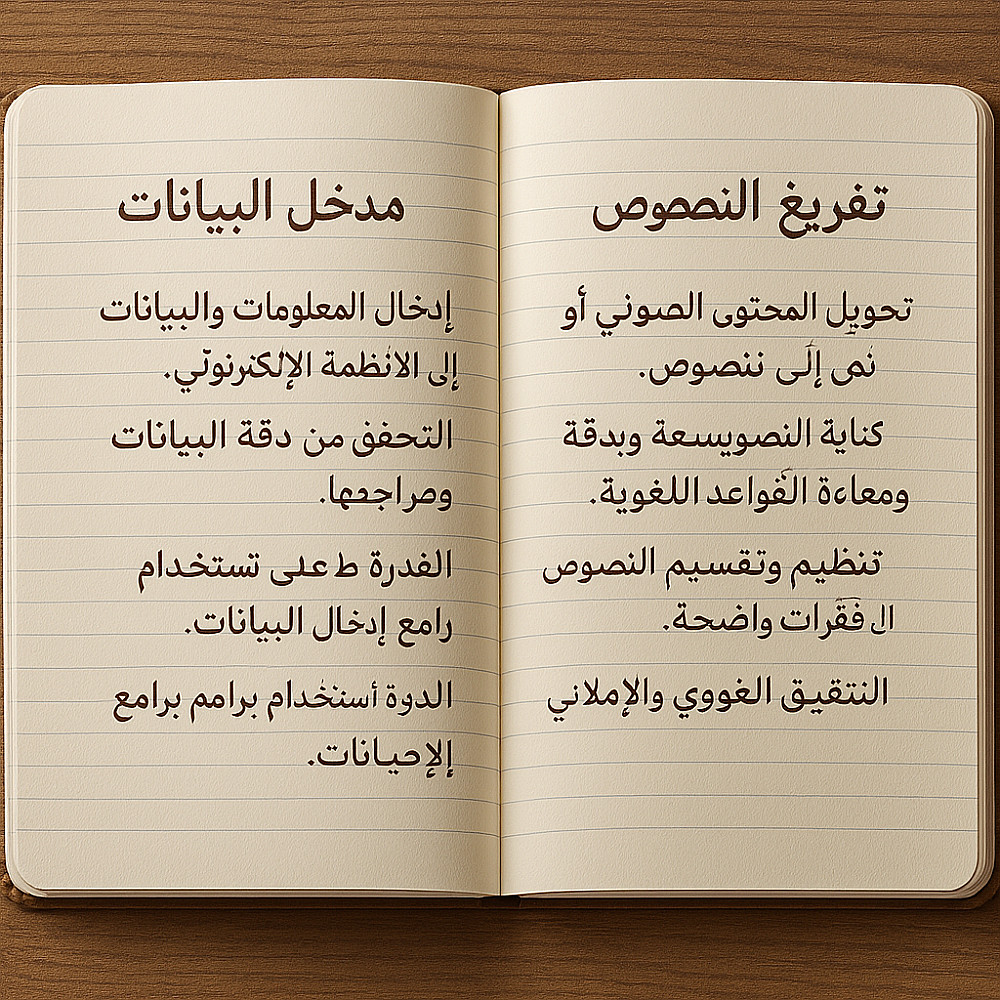 تفريغ النصصوص
تحويل المحتوى الصوني أو
نص إلى ننصوص.
كناية النصويسعة وبدقة
ومعاءة القواعد اللغوية.
تنظيم وتقسيم النصوص
ال فقرات واضحة.
النتقيق الغووي والإملاني
مدخل البيانات
إدخال المعلومات والبيانات
إلى الانظمة الإلكنرنوني.
التحفق من دقة البيانات
ومراجعها.
الفدرة ط على تستخدام
رامع إدخال البيانات.
الدوة أستخدام برامم برامع
إلإحيانات.